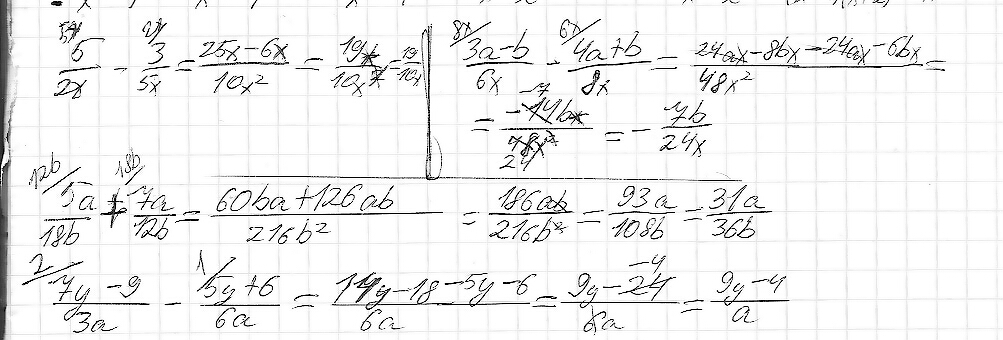 5x/ 5/2x - 2x/ 3/5x = (25x-6x)/10x² = 19x/10x² = 19/10x
8x/ (3a-b)/6x - 6x/ (4a+b)/8x = (24ax-8bx-24ax-6bx)/48x² =
= -14bx/48x² -7 24 = - 7b/24x
12b/ 5a/18b + 18b/ 7a/12b = (60ba+126ab)/216b² = 186ab/216b² = 93a/108b = 31a/36b
2/ (7y-9)/3a - 1/ (5y+6)/6a = (14y-18-5y-6)/6a = (9y-24)/6a -4 = (9y-4)/a